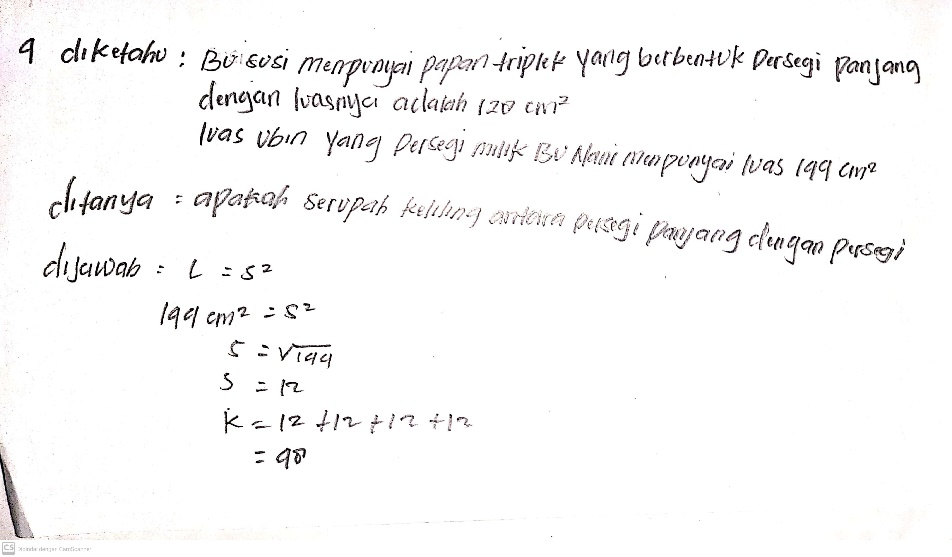 4 diketahu : Bu susi menpunyai papan triplek yang berbentuk Persegi Panjang
dengan luasnya adalah 120 cm²
luas ubin yang Persegi milik Bu Nani menpunyai luas 144 cm²
ditanya = apakah serupah keliling antara persegi panjang dengan persegi
dijawab = L = s²
144 cm² = s²
s = √144
s = 12
K = 12 + 12 + 12 + 12
= 48
CS Dipindai dengan CamScanner